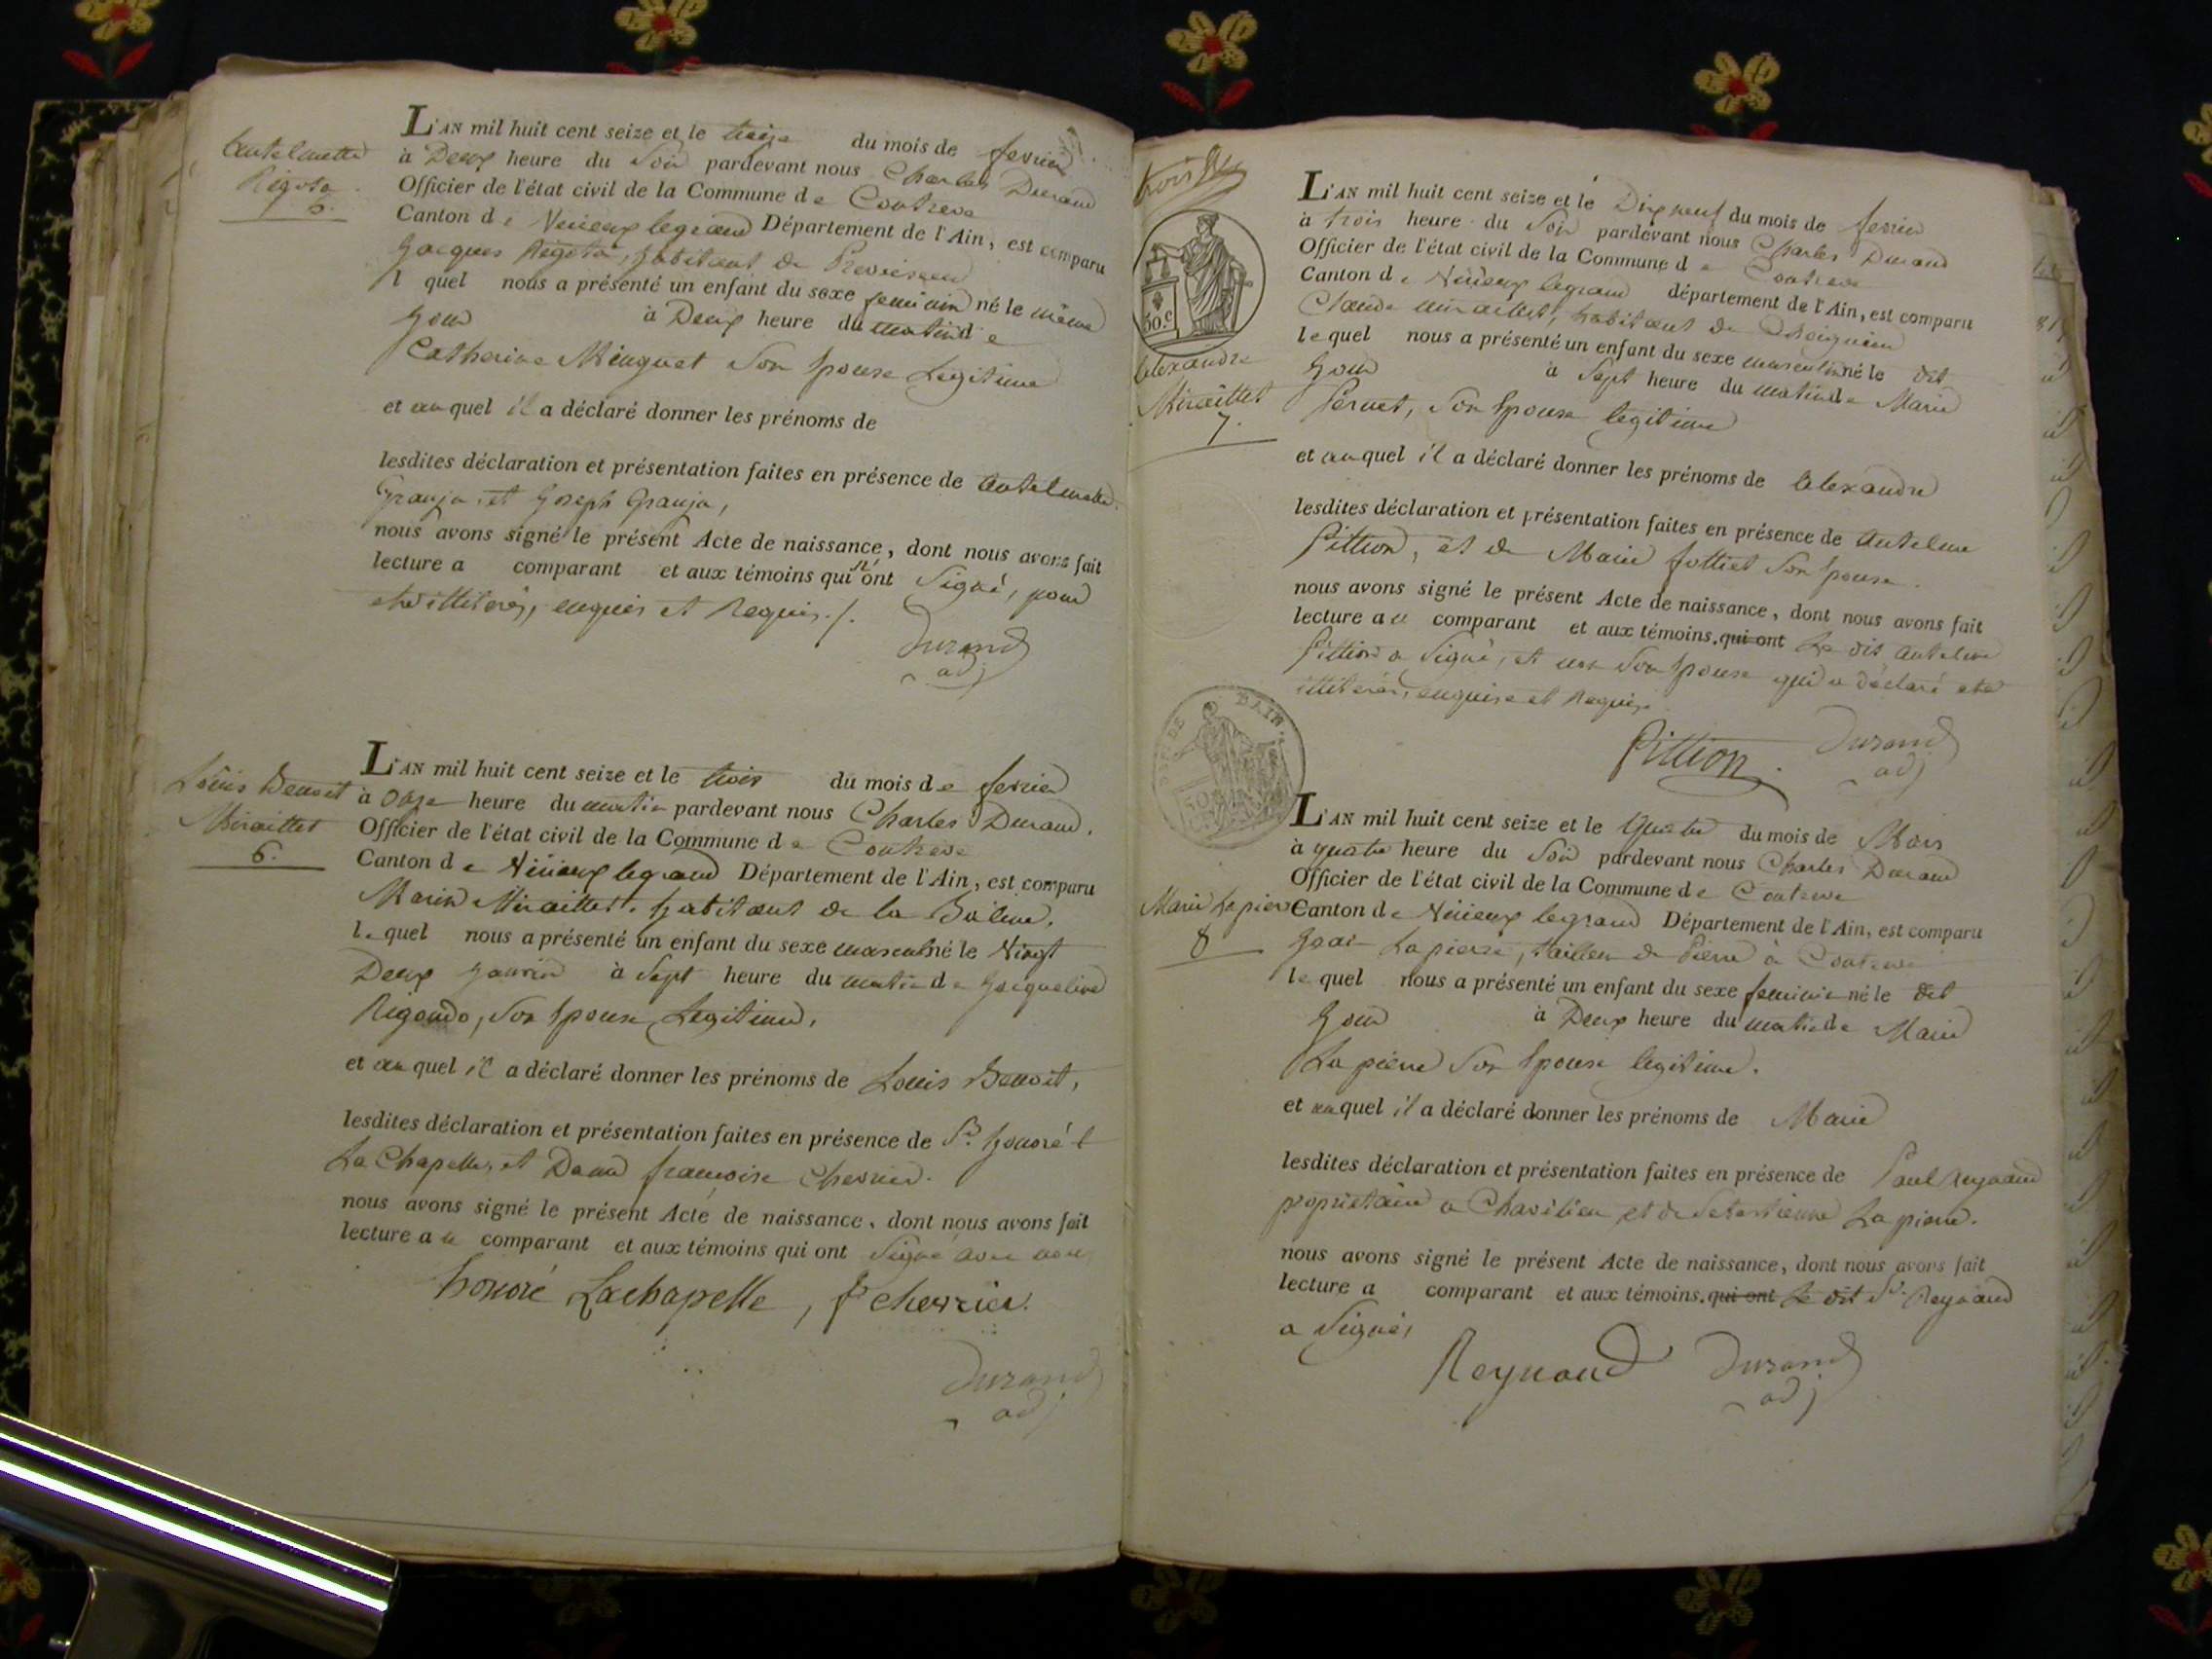 Antelmette
Rigota
6.
L'AN mil huit cent seize et le treize du mois de fevrier
à Deux heure du Soir pardevant nous Charles Durand
Officier de l'état civil de la Commune de Contrevo
Canton de Virieux legrand Département de l'Ain, est comparu
Jacques Rigota, habitant de
l quel nous a présenté un enfant du sexe feminin né le même
Jour à Deux heure du matin de
Catherine Minguet Son Epouse Legitime
et auquel il a déclaré donner les prénoms de
lesdites déclaration et présentation faites en présence de Antelmette
Granja, et Joseph Granja,
nous avons signé le présent Acte de naissance, dont nous avons fait
lecture a comparant et aux témoins qui n'ont Signé, pour
etre illiterés, enquis et Requis ./.
Durand
adj
Louis Benoit
Miraillet
6.
L'AN mil huit cent seize et le trois du mois de fevrier
à Onze heure du matin pardevant nous Charles Durand,
Officier de l'état civil de la Commune de Contrevo
Canton de Virieux legrand Département de l'Ain, est comparu
Marin Miraillet, habitant de la Balme,
lequel nous a présenté un enfant du sexe masculin né le Vingt
Deux Janvier à Sept heure du matin de Jacqueline
Rigondo, Son Epouse Legitime,
et auquel il a déclaré donner les prénoms de Louis Benoit,
lesdites déclaration et présentation faites en présence de Sr. honoré
La Chapelle, et Dame francoise Chervier.
nous avons signé le présent Acte de naissance, dont nous avons fait
lecture au comparant et aux témoins qui ont Signé avec nous
honoré Lachapelle, f chervier.
Durand
adj
50.c
Alexandre
Miraillet
7.
L'AN mil huit cent seize et le Dix neuf du mois de fevrier
à trois heure du Soir pardevant nous Charles Durand
Officier de l'état civil de la Commune de Contrevo
Canton de Virieux legrand département de l'Ain, est comparu
Claude miraillet, habitant de
lequel nous a présenté un enfant du sexe masculin né le dit
Jour à Sept heure du matin de Marie
Pernet, Son Epouse legitime
et auquel il a déclaré donner les prénoms de Alexandre
lesdites déclaration et présentation faites en présence de Antelme
Pittion, et de Marie Jolliet Son Epouse.
nous avons signé le présent Acte de naissance, dont nous avons fait
lecture au comparant et aux témoins. qui ont Le dit Antelme
Pittion a Signé, et non Son Epouse qui a déclaré etre
illiterée, enquise et Requise
Pittion. Durand
adj
Marie Lapierre
8
L'AN mil huit cent seize et le Quatre du mois de Mars
à quatre heure du Soir pardevant nous Charles Durand
Officier de l'état civil de la Commune de Contrevo
Canton de Virieux legrand Département de l'Ain, est comparu
Jean Lapierre, tailleur de Pierre à Contrevo
lequel nous a présenté un enfant du sexe feminin né le dit
Jour à Deux heure du matin de Marie
Lapierre Son Epouse legitime.
et auquel il a déclaré donner les prénoms de Marie
lesdites déclaration et présentation faites en présence de Paul Reynaud
proprietaire a Chavilieu et de Lapierre.
nous avons signé le présent Acte de naissance, dont nous avons fait
lecture a comparant et aux témoins. qui ont Le dit Sr. Reynaud
a Signé,
Reynaud Durand
adj